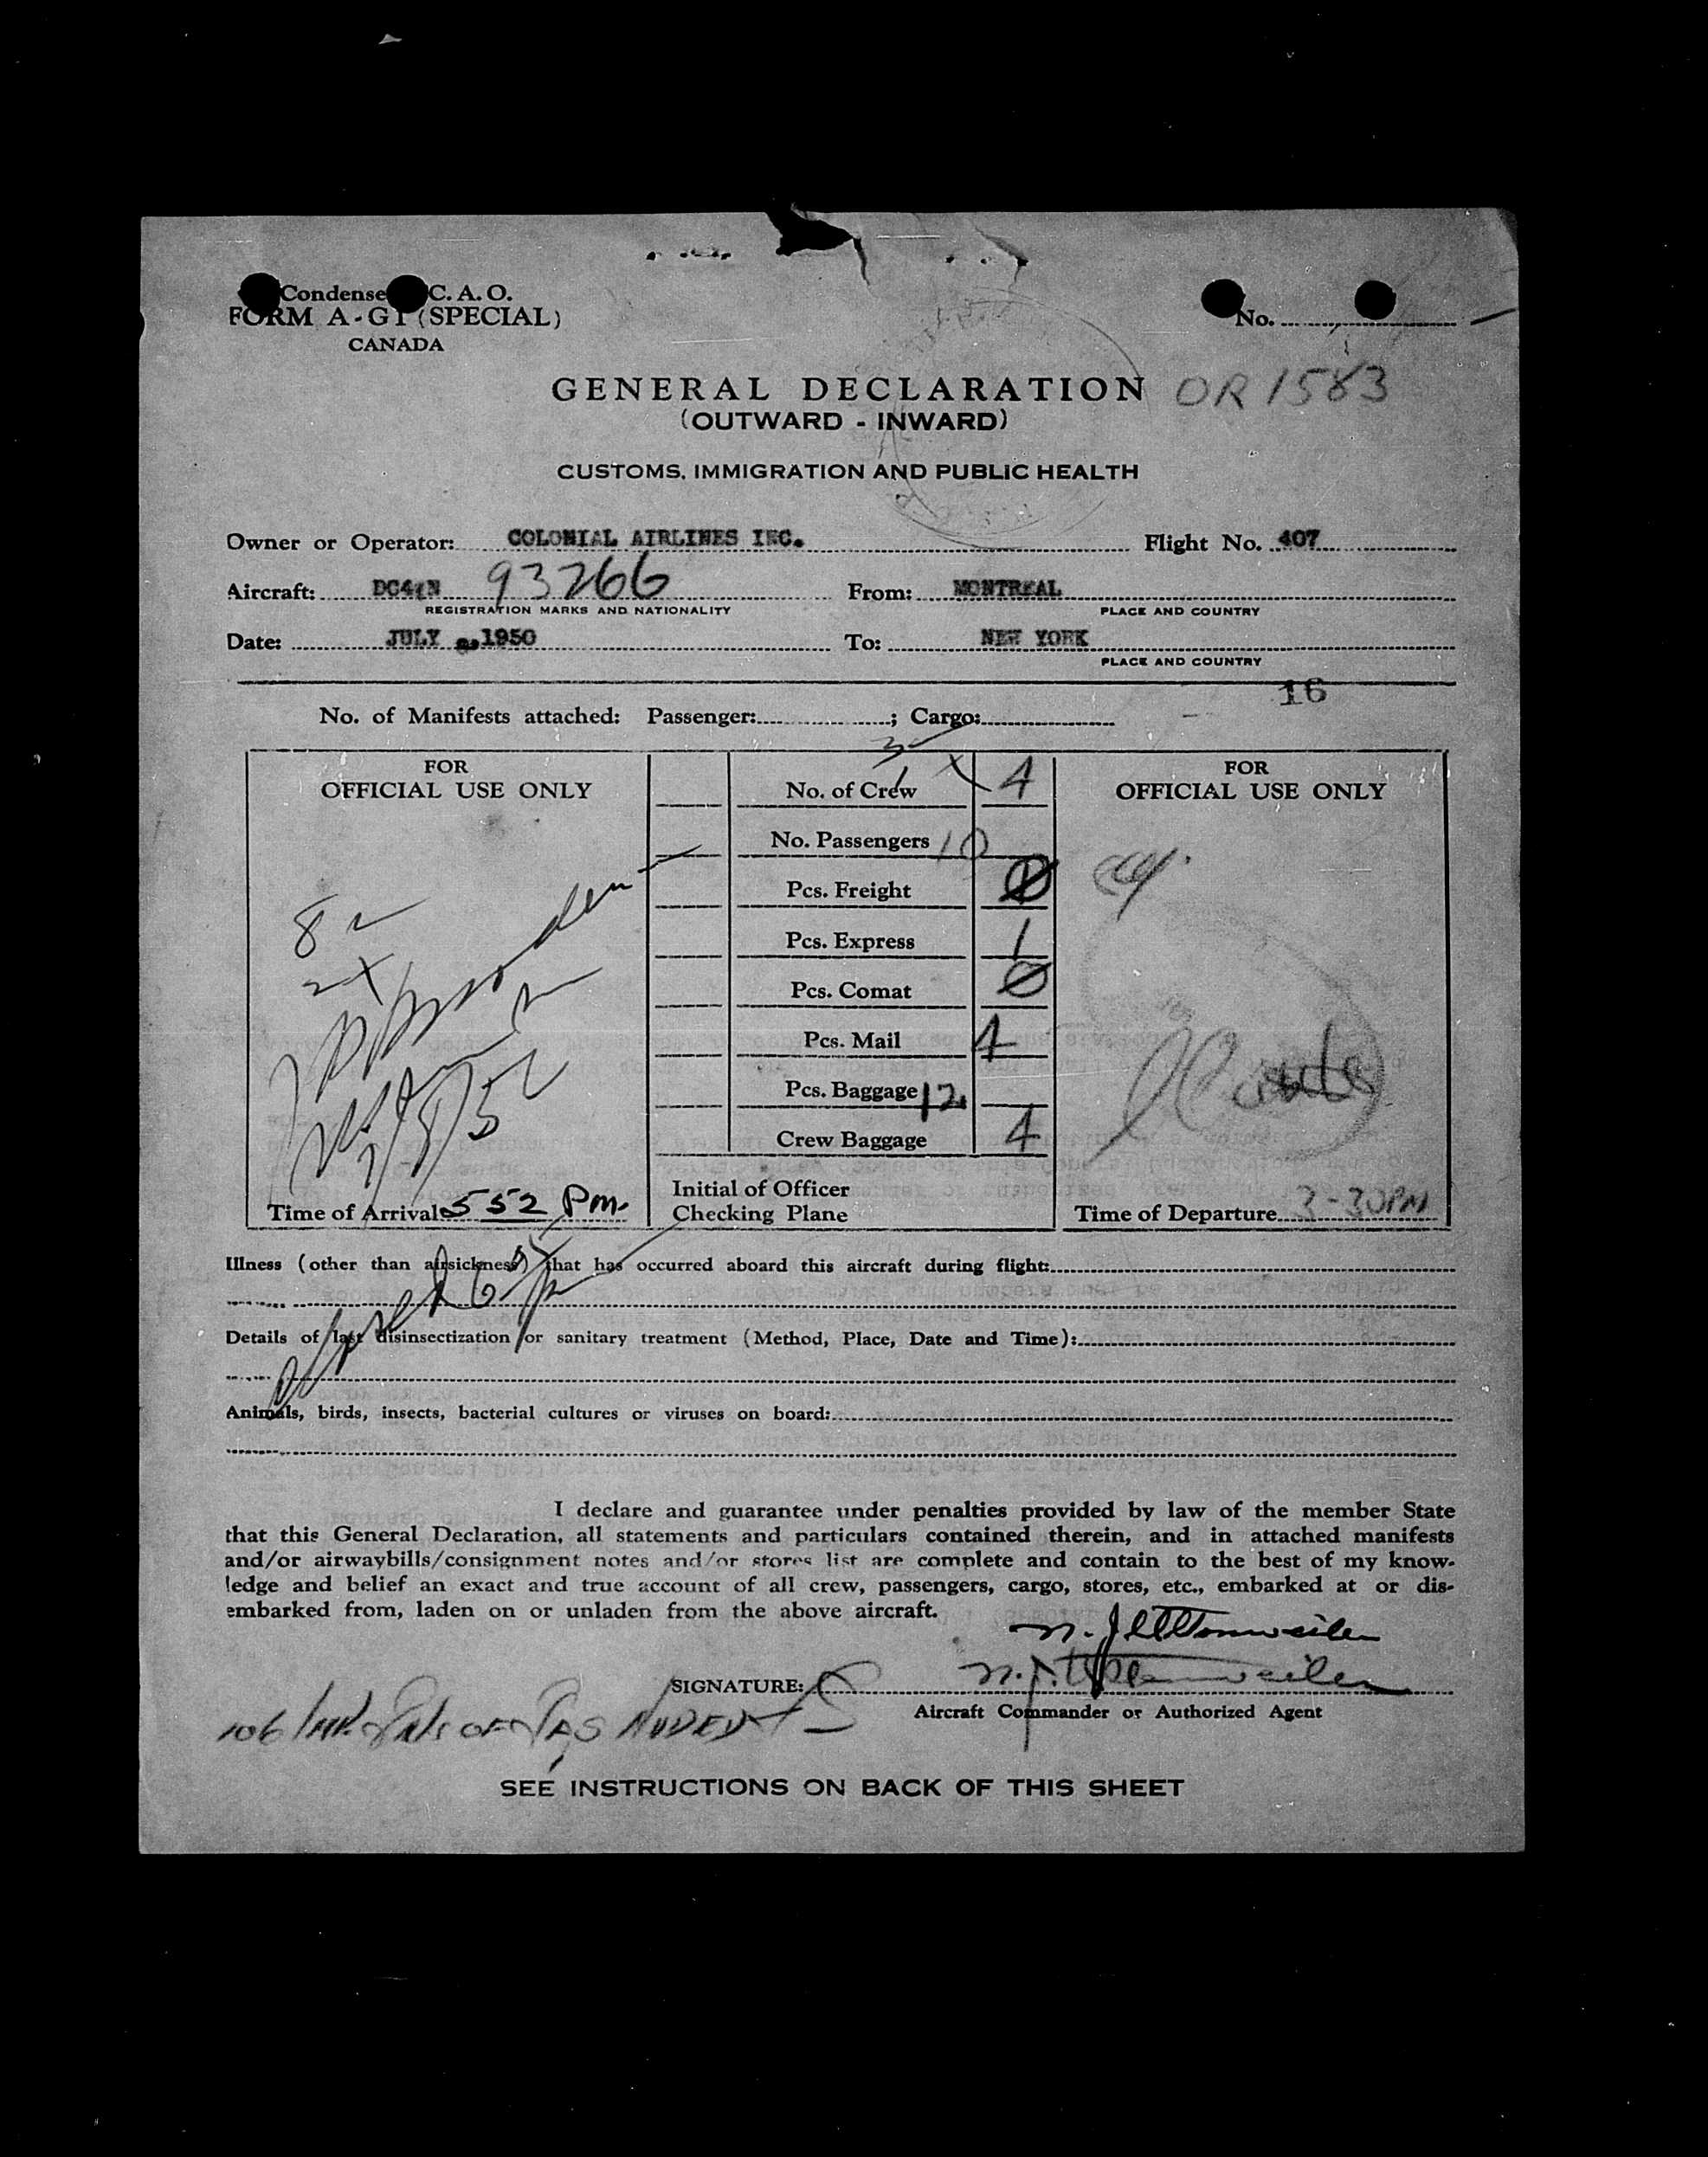 Condense C. A. O.
FORM A-G1 (SPECIAL)
CANADA
No.
GENERAL DECLARATION OR 1583
(OUTWARD - INWARD)
CUSTOMS, IMMIGRATION AND PUBLIC HEALTH
Owner or Operator: COLONIAL AIRLINES INC. Flight No. 407
Aircraft: DC4:N 93266 From: MONTREAL
REGISTRATION MARKS AND NATIONALITY PLACE AND COUNTRY
Date: JULY 1950 To: NEW YORK
PLACE AND COUNTRY
16
No. of Manifests attached: Passenger: ; Cargo:
3
FOR
OFFICIAL USE ONLY
8
2 X
7/8/50
Time of Arrival 552 Pm.
1 X
No. of Crew 4
No. Passengers 10
Pcs. Freight 0
Pcs. Express 1
Pcs. Comat 0
Pcs. Mail 4
Pcs. Baggage 12
Crew Baggage 4
Initial of Officer
Checking Plane
FOR
OFFICIAL USE ONLY
Time of Departure 3-30PM
Illness (other than airsickness) that has occurred aboard this aircraft during flight:
Details of last disinsectization or sanitary treatment (Method, Place, Date and Time):
Animals, birds, insects, bacterial cultures or viruses on board:
I declare and guarantee under penalties provided by law of the member State
that this General Declaration, all statements and particulars contained therein, and in attached manifests
and/or airwaybills/consignment notes and/or stores list are complete and contain to the best of my know-
ledge and belief an exact and true account of all crew, passengers, cargo, stores, etc., embarked at or dis-
embarked from, laden on or unladen from the above aircraft.
SIGNATURE:
Aircraft Commander or Authorized Agent
106
SEE INSTRUCTIONS ON BACK OF THIS SHEET